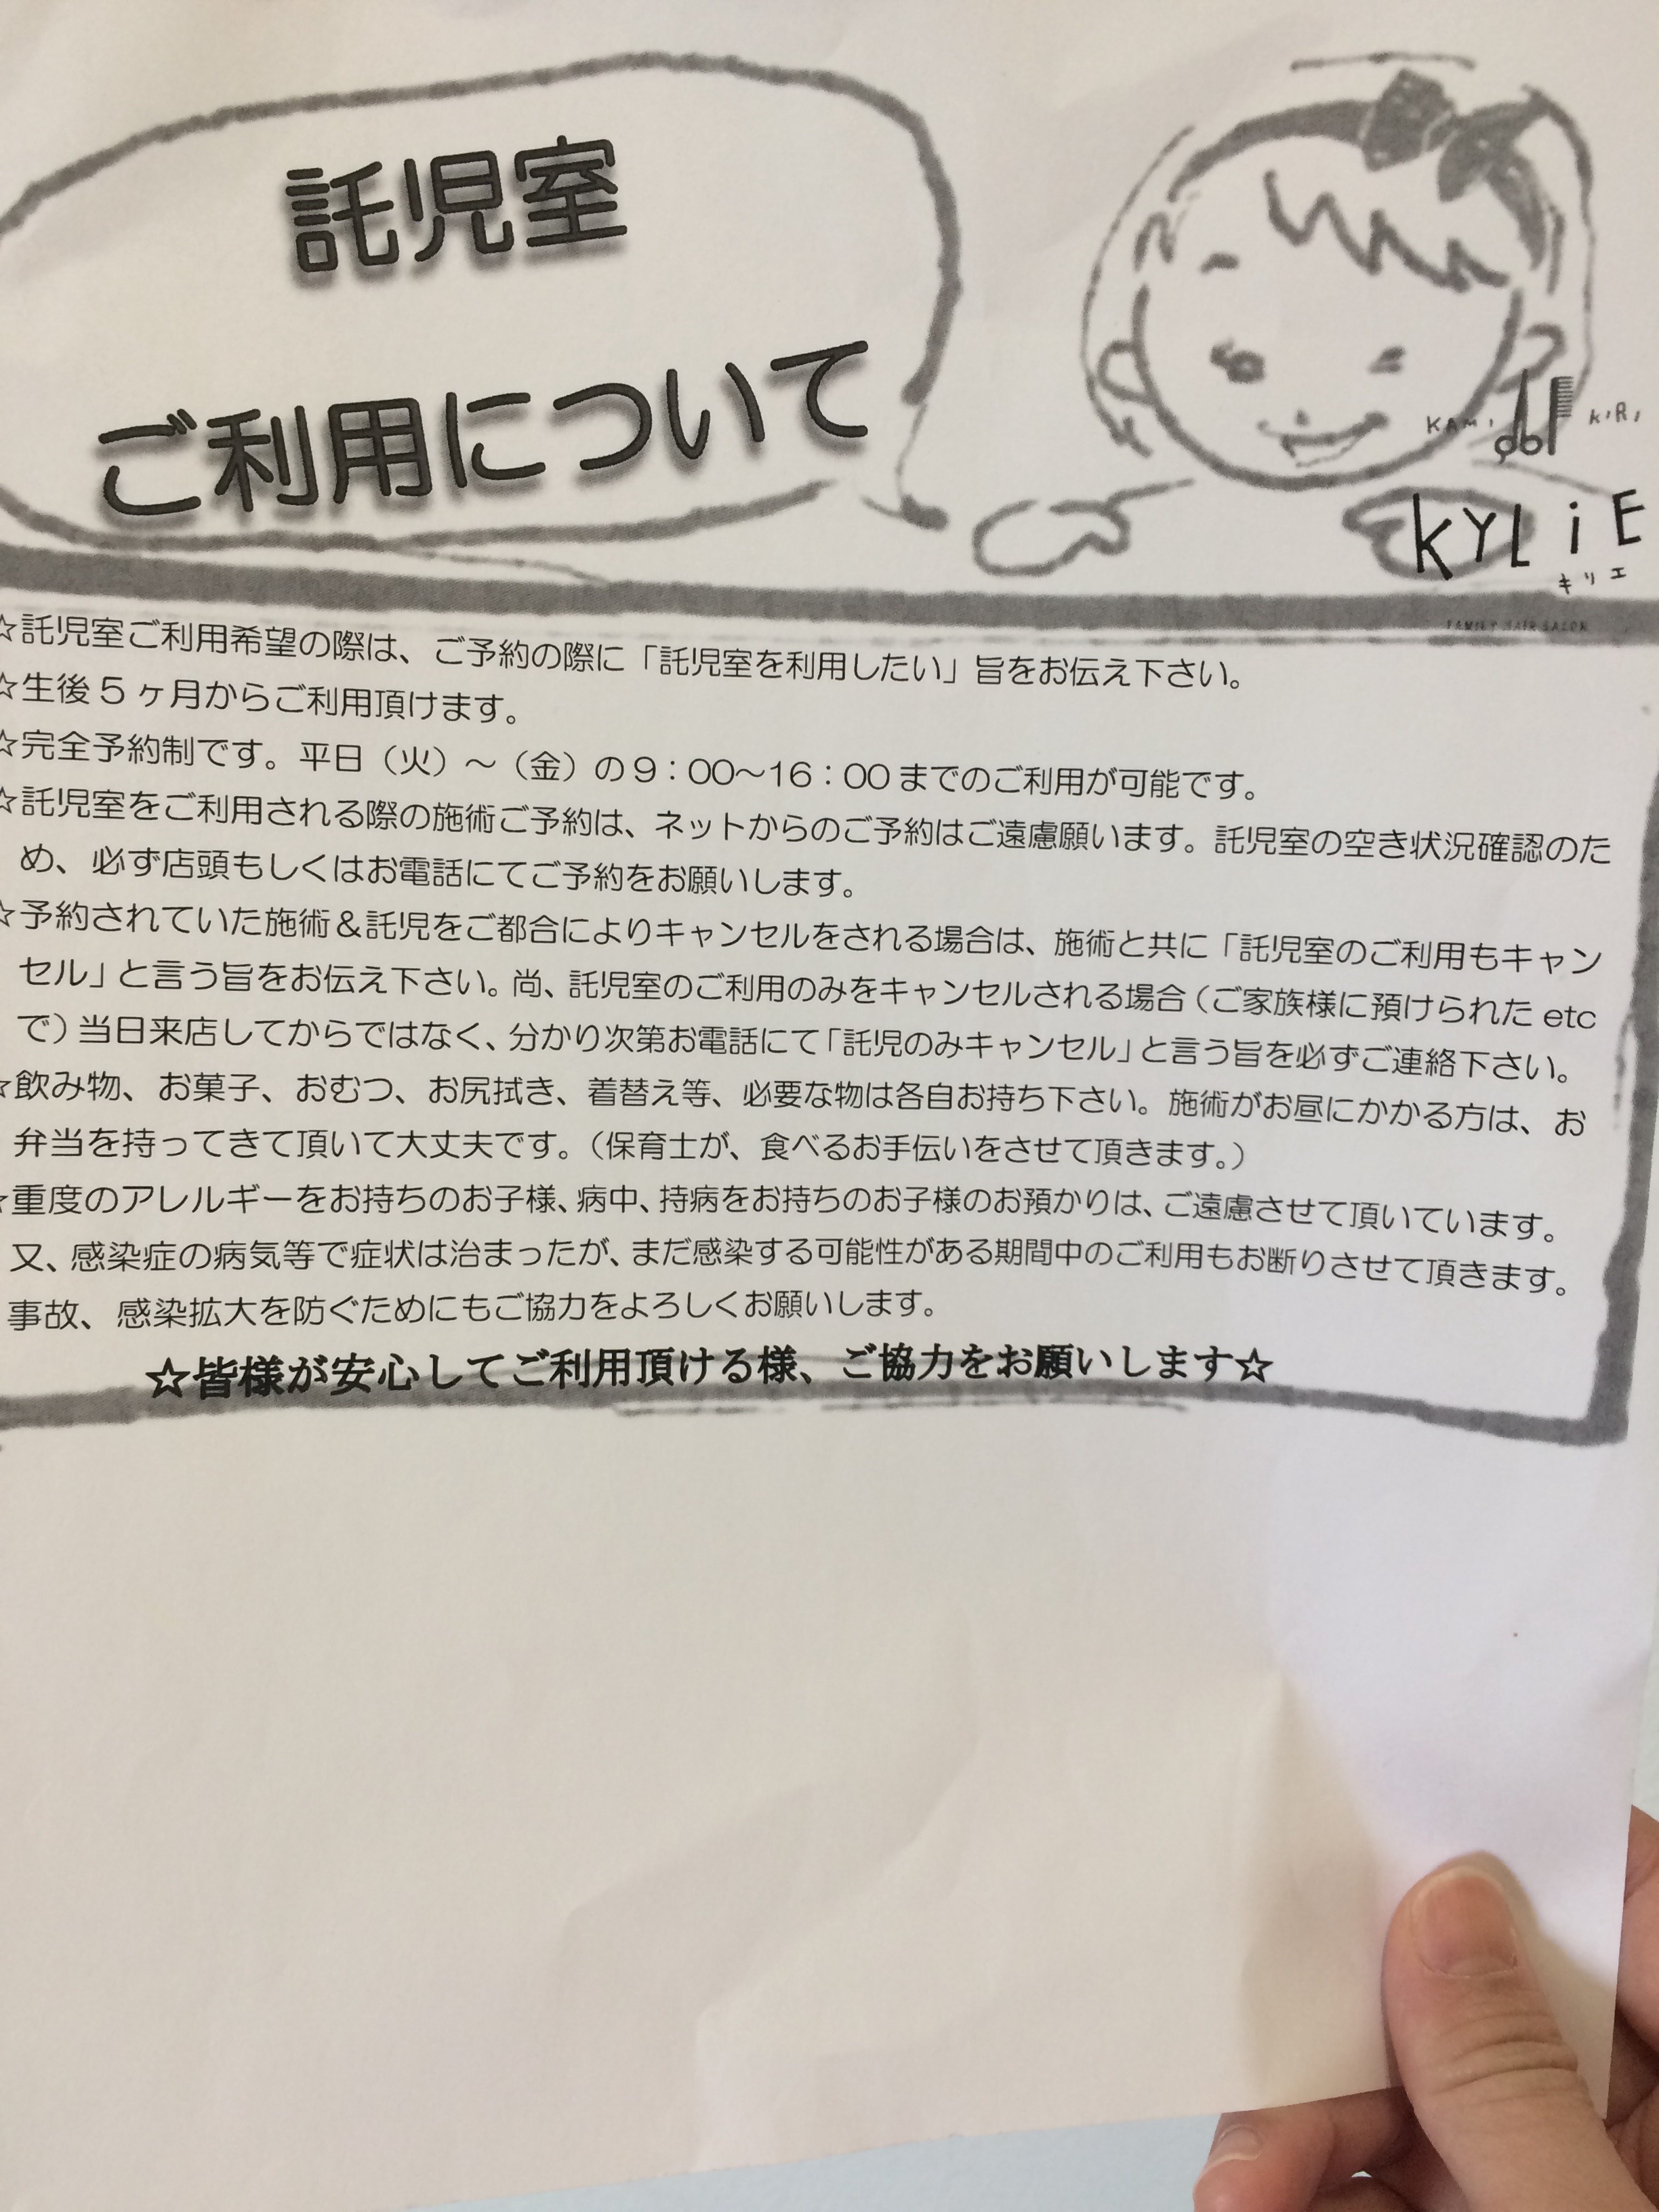 託児室
ご利用について
KAMI KIRI
KYLiE
キリエ
FAMILY HAIR SALON
☆託児室ご利用希望の際は、ご予約の際に「託児室を利用したい」旨をお伝え下さい。
☆生後5ヶ月からご利用頂けます。
☆完全予約制です。平日（火）～（金）の9：00～16：00までのご利用が可能です。
☆託児室をご利用される際の施術ご予約は、ネットからのご予約はご遠慮願います。託児室の空き状況確認のた
め、必ず店頭もしくはお電話にてご予約をお願いします。
☆予約されていた施術＆託児をご都合によりキャンセルをされる場合は、施術と共に「託児室のご利用もキャン
セル」と言う旨をお伝え下さい。尚、託児室のご利用のみをキャンセルされる場合（ご家族様に預けられたetc
で）当日来店してからではなく、分かり次第お電話にて「託児のみキャンセル」と言う旨を必ずご連絡下さい。
☆飲み物、お菓子、おむつ、お尻拭き、着替え等、必要な物は各自お持ち下さい。施術がお昼にかかる方は、お
弁当を持ってきて頂いて大丈夫です。（保育士が、食べるお手伝いをさせて頂きます。）
☆重度のアレルギーをお持ちのお子様、病中、持病をお持ちのお子様のお預かりは、ご遠慮させて頂いています。
又、感染症の病気等で症状は治まったが、まだ感染する可能性がある期間中のご利用もお断りさせて頂きます。
事故、感染拡大を防ぐためにもご協力をよろしくお願いします。
☆皆様が安心してご利用頂ける様、ご協力をお願いします☆